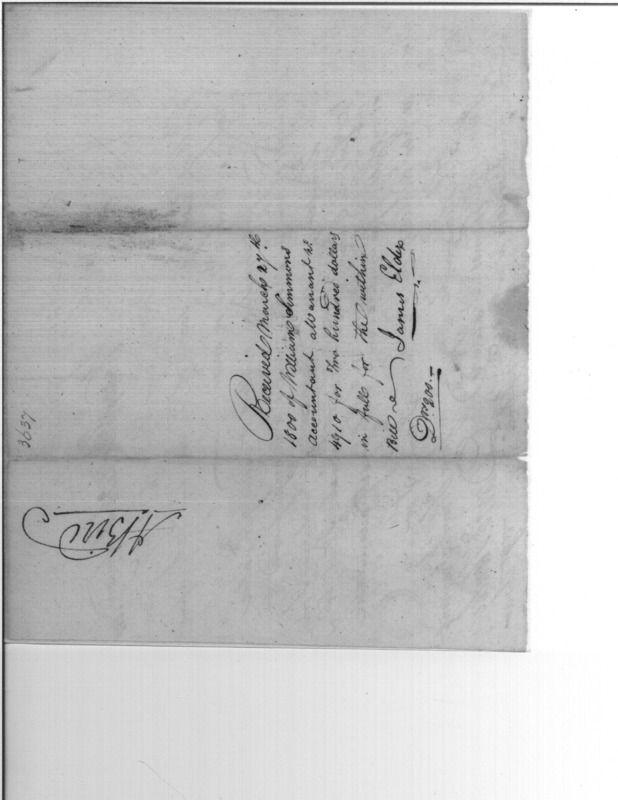 3637
Received March 27th
1800 of William Simmons
accountant a warrant No.
4910 for Two hundred dollars
in full for the within
Bill
James Elder
Drs 200.–
A Bill